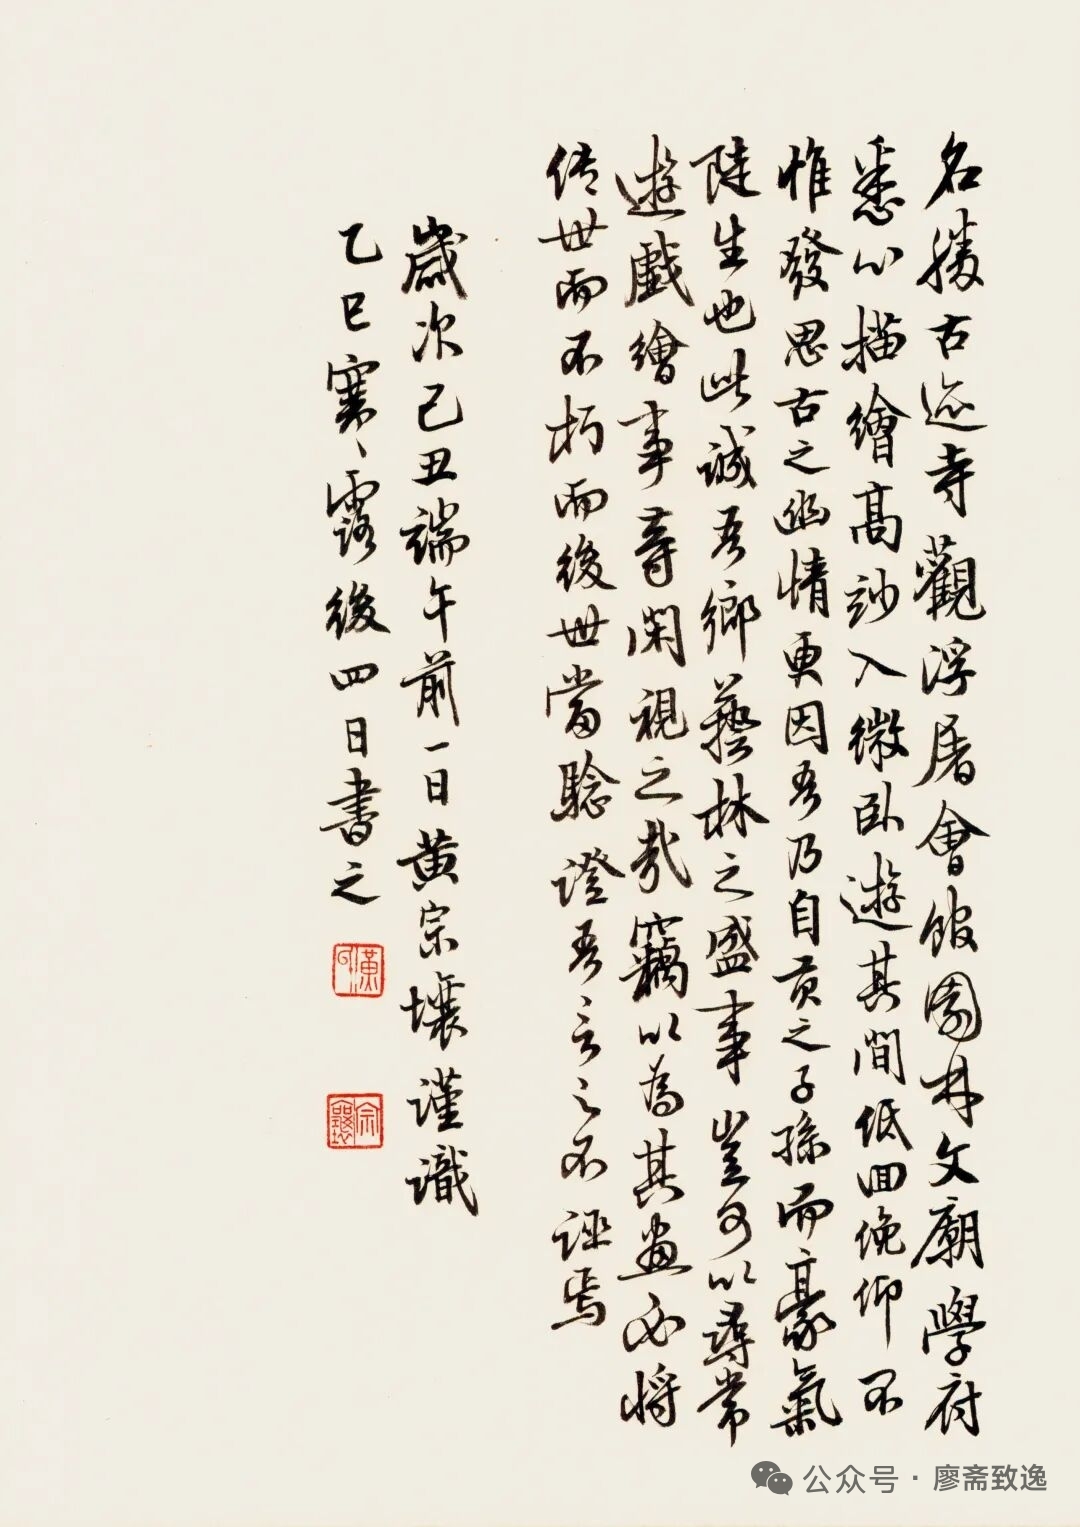 名勝古迹寺觀浮屠會館園林文廟學府
悉心描繪高玅入微卧遊其間低回俛仰不
惟發思古之幽情更因吾乃自貢之子孫而豪氣
陡生也此誠吾鄉藝林之盛事豈可以尋常
遊戲繪事等閑視之哉竊以為其畫必將
傳世而不朽而後世當驗證吾言之不誣焉
歲次己丑端午前一日黄宗壤謹識
乙巳寒露後四日書之
公众号·廖斋致逸